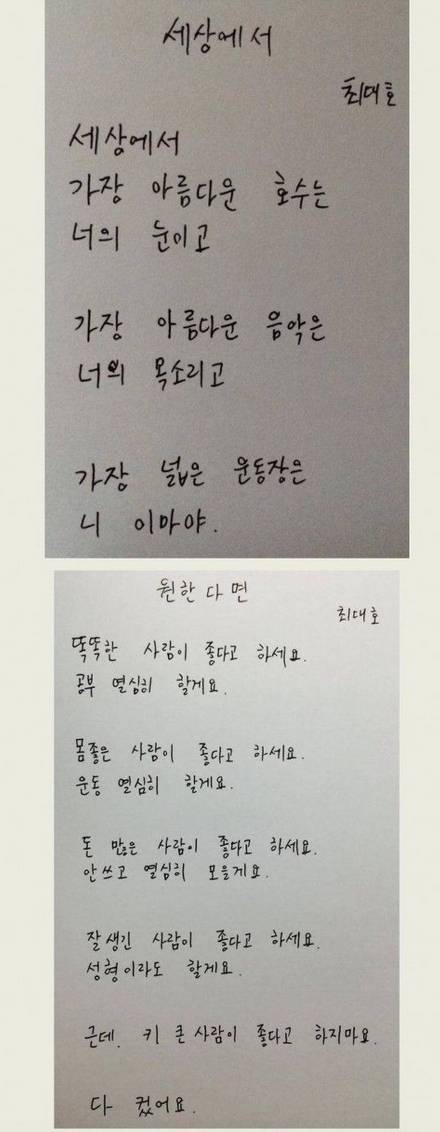 세상에서
최대호
세상에서
가장 아름다운 호수는
너의 눈이고
가장 아름다운 음악은
너의 목소리고
가장 넓은 운동장은
니 이마야.
원한다면
최대호
똑똑한 사람이 좋다고 하세요.
공부 열심히 할게요.
몸좋은 사람이 좋다고 하세요.
운동 열심히 할게요.
돈 많은 사람이 좋다고 하세요.
안쓰고 열심히 모을게요.
잘생긴 사람이 좋다고 하세요.
성형이라도 할게요.
근데. 키 큰 사람이 좋다고 하지마요.
다 컸어요.